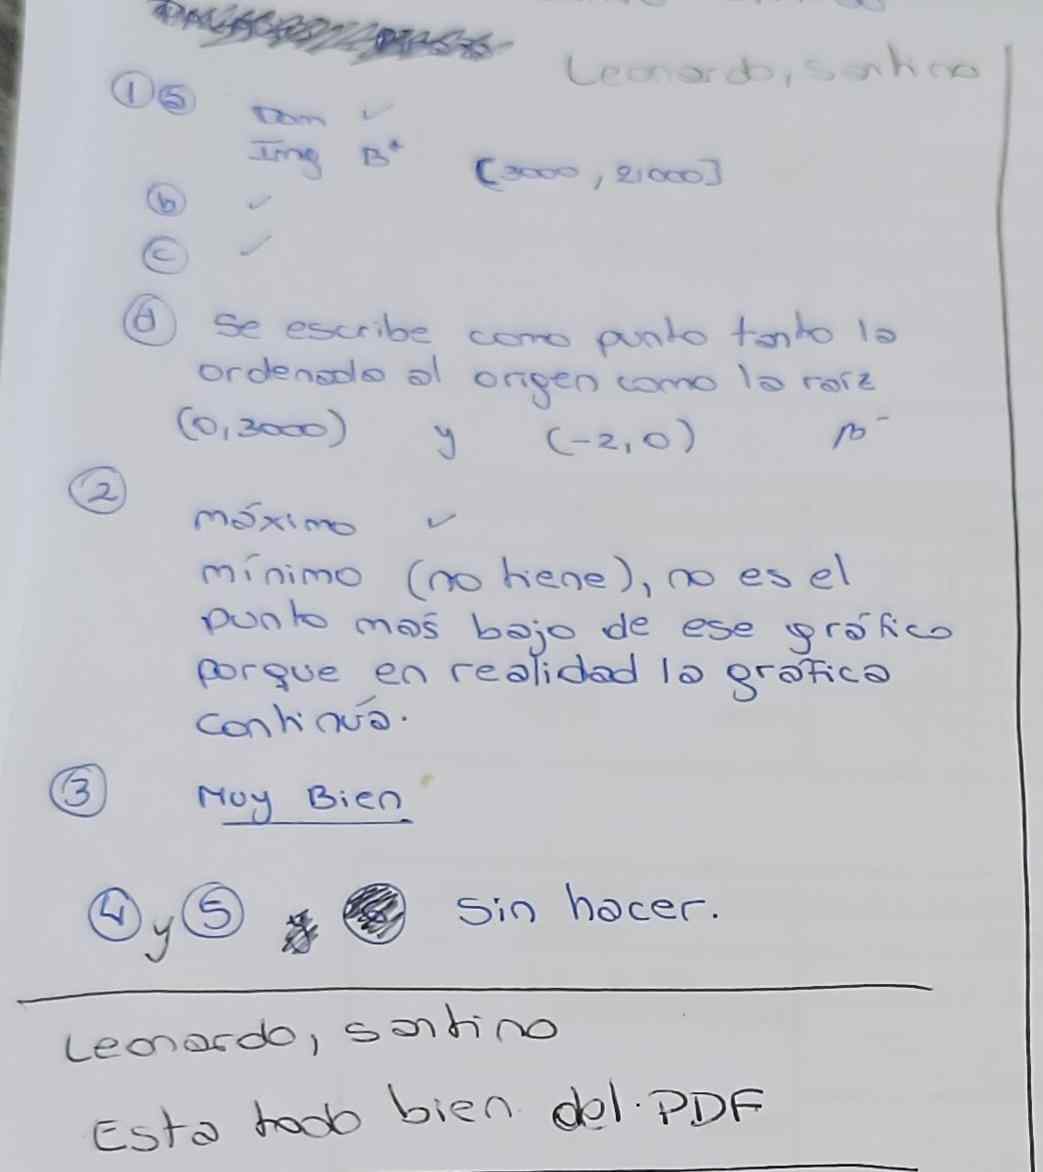 Leonardo, Santino
① ⑤
Dom ✓
Img B⁺ [3000, 21000]
ⓑ ✓
ⓒ ✓
ⓓ Se escribe como punto tanto la
ordenada al origen como la raíz
(0,3000) y (-2,0) B⁻
② máximo ✓
mínimo (no tiene), no es el
punto mas bajo de ese gráfico
porque en realidad la gráfica
continúa.
③ Muy Bien
④ y ⑤ sin hacer.
Leonardo, santino
Esta todo bien del PDF